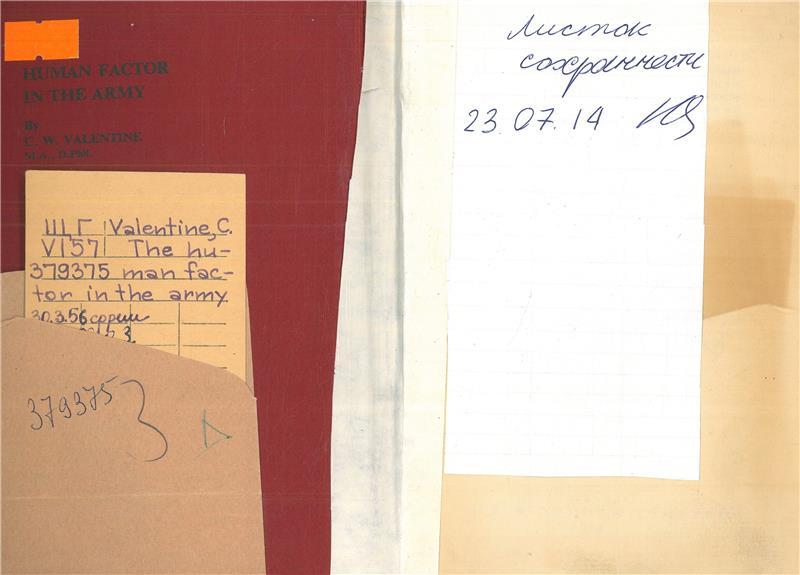 HUMAN FACTOR
IN THE ARMY
By
C. W. VALENTINE
M.A., D.Phil.
ЩГ Valentine, C.
V157 The hu-
379375 man fac-
tor in the army
30.3.56
379375
Листок
сохранности
23.07.14